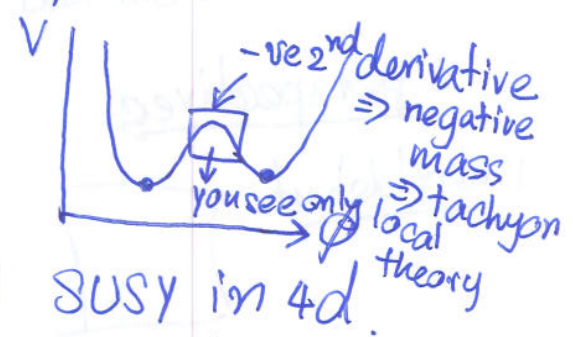 V
-ve 2nd derivative
⇒ negative
mass
⇒ tachyon
you see only
local
theory
ϕ
SUSY in 4d.